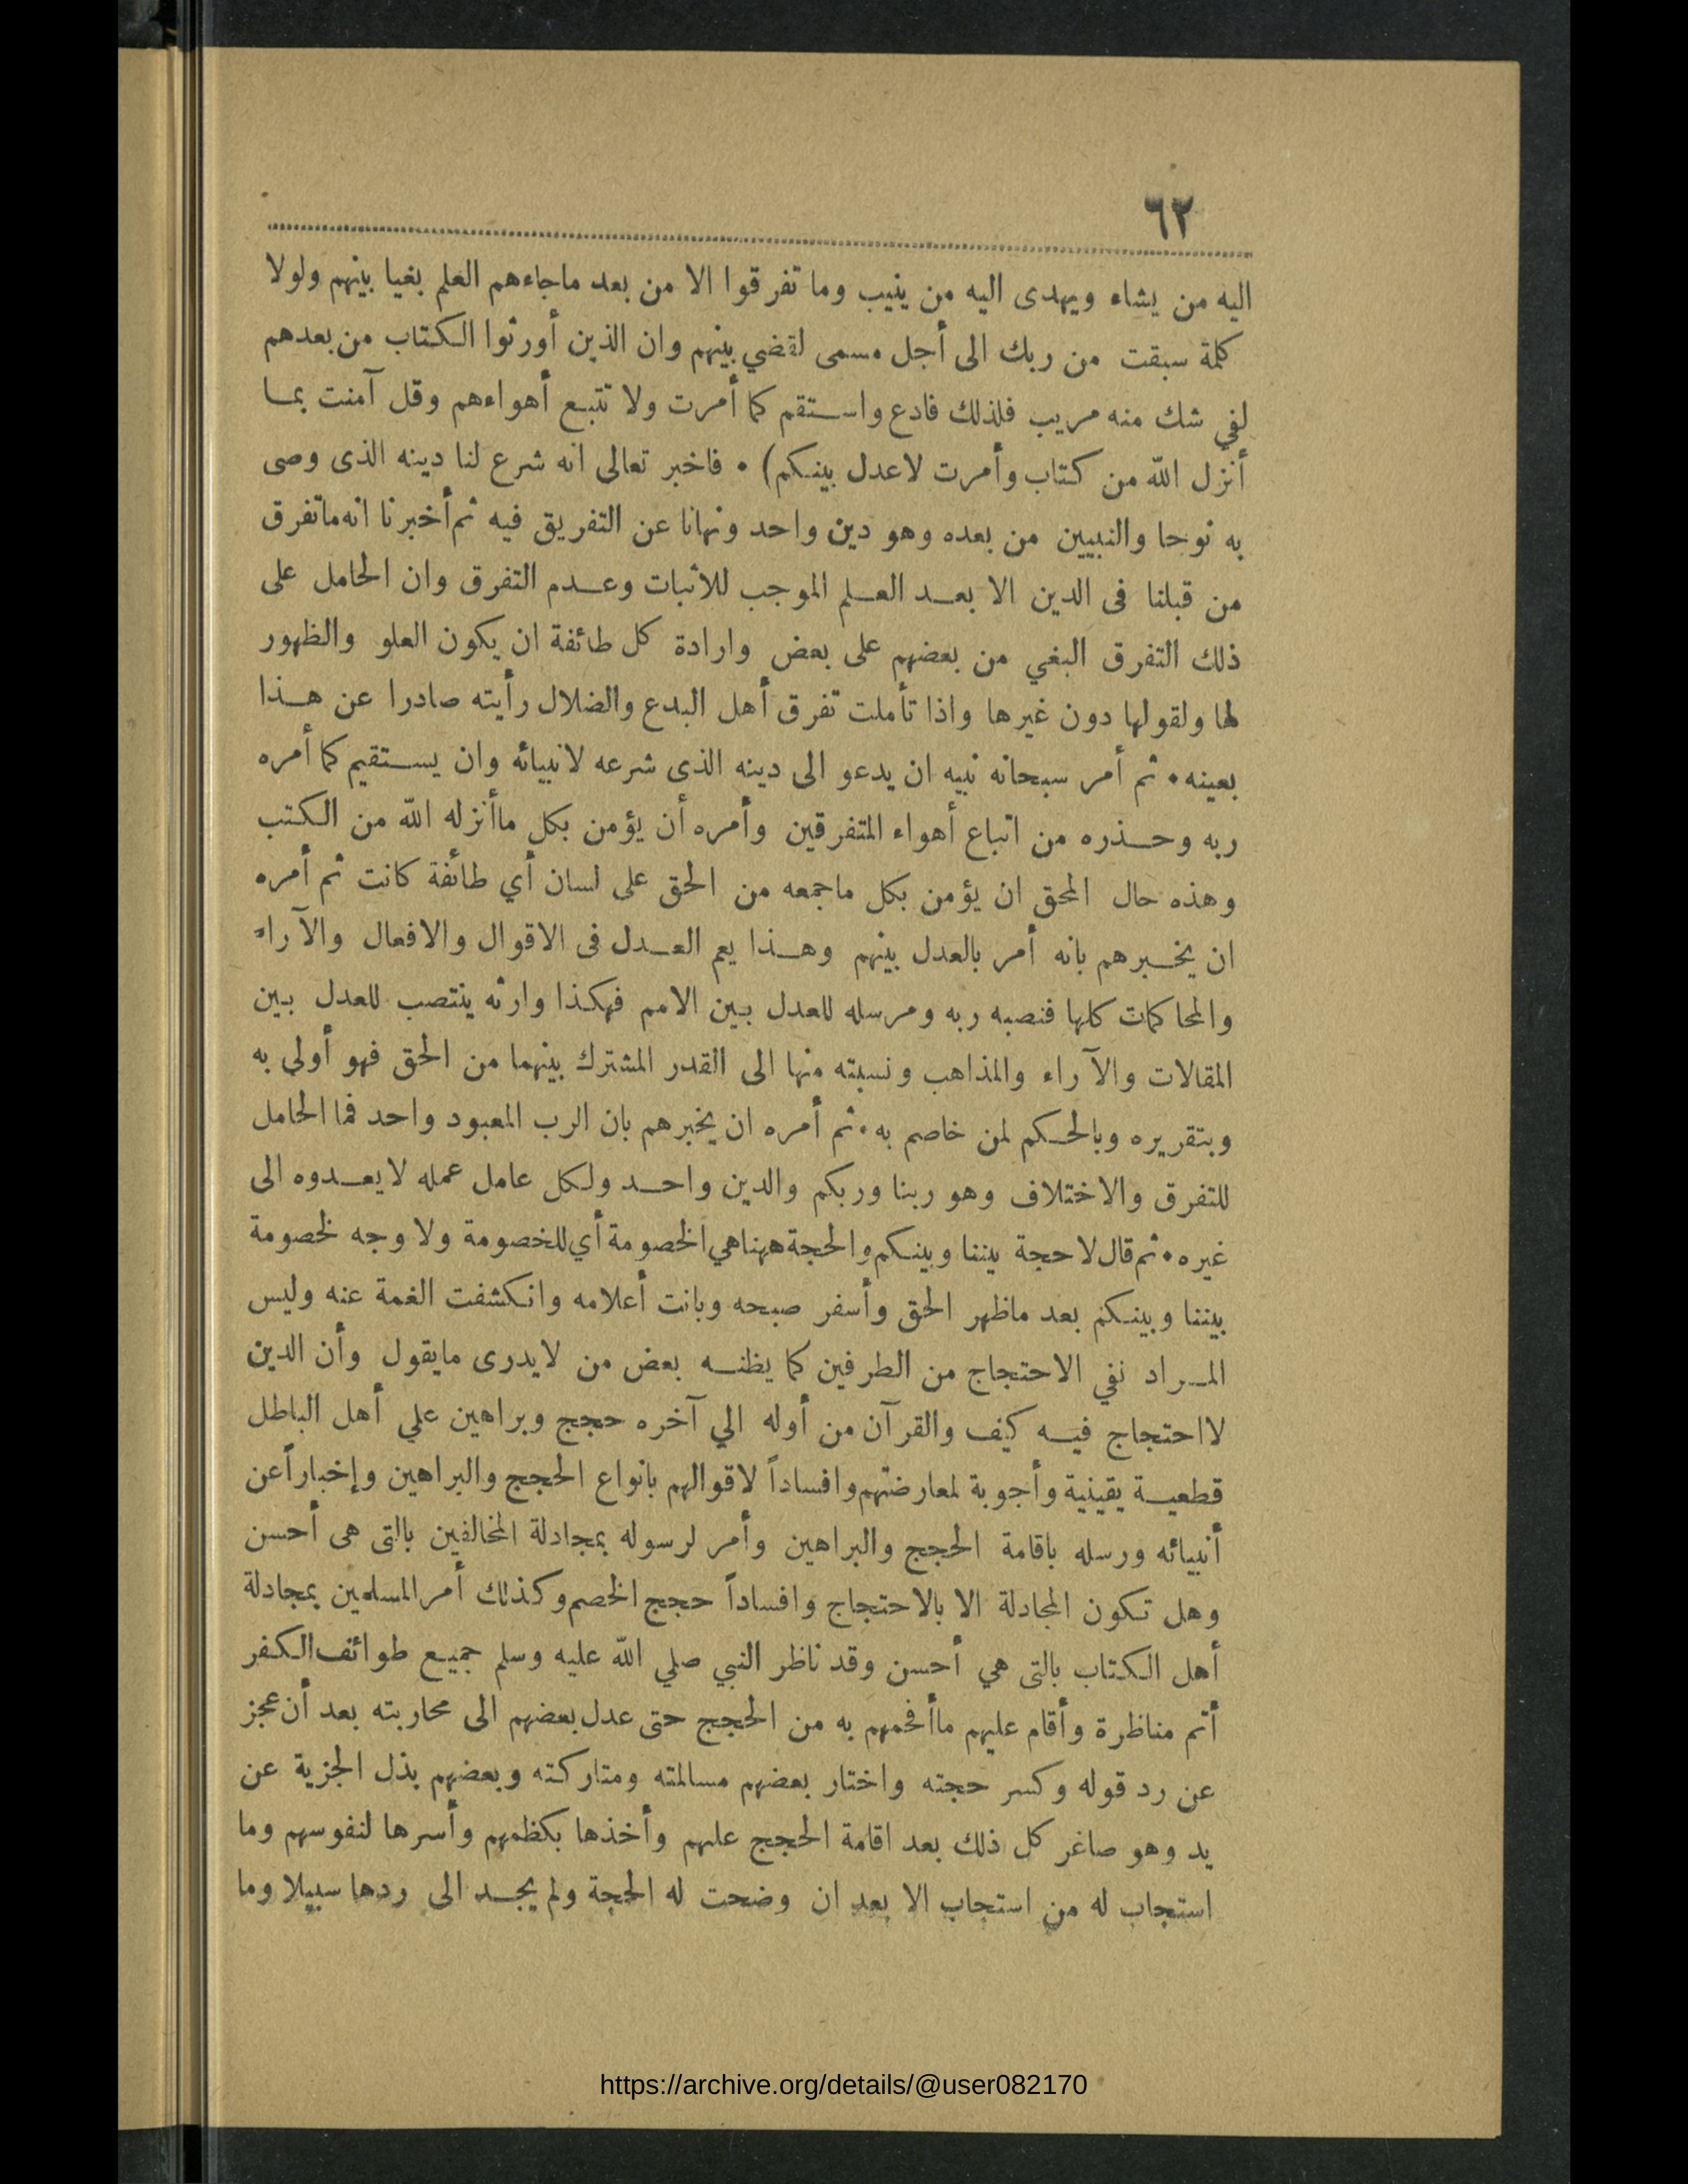 ٦٢
اليه من يشاء ويهدى اليه من ينيب وما تفرقوا الا من بعد ماجاءهم العلم بغيا بينهم ولولا
كلمة سبقت من ربك الى أجل مسمى لقضي بينهم وان الذين أورثوا الكتاب من بعدهم
لفي شك منه مريب فلذلك فادع واستقم كما أمرت ولا تتبع أهواءهم وقل آمنت بما
أنزل الله من كتاب وأمرت لاعدل بينكم) • فاخبر تعالى انه شرع لنا دينه الذى وصى
به نوحا والنبيين من بعده وهو دين واحد ونهانا عن التفريق فيه ثم أخبرنا انه ماتفرق
من قبلنا فى الدين الا بعد العلم الموجب للاثبات وعدم التفرق وان الحامل على
ذلك التفرق البغي من بعضهم على بعض وارادة كل طائفة ان يكون العلو والظهور
لها ولقولها دون غيرها واذا تأملت تفرق أهل البدع والضلال رأيته صادرا عن هذا
بعينه • ثم أمر سبحانه نبيه ان يدعو الى دينه الذى شرعه لانبيائه وان يستقيم كما أمره
ربه وحذره من اتباع أهواء المتفرقين وأمره أن يؤمن بكل ماأنزله الله من الكتب
وهذه حال المحق ان يؤمن بكل ماجمعه من الحق على لسان أي طائفة كانت ثم أمره
ان يخبرهم بانه أمر بالعدل بينهم وهذا يعم العدل فى الاقوال والافعال والآراء
والمحاكمات كلها فنصبه ربه ومرسله للعدل بين الامم فهكذا وارثه ينتصب للعدل بين
المقالات والآراء والمذاهب ونسبته منها الى القدر المشترك بينهما من الحق فهو أولى به
وبتقريره وبالحكم لمن خاصم به • ثم أمره ان يخبرهم بان الرب المعبود واحد فما الحامل
للتفرق والاختلاف وهو ربنا وربكم والدين واحد ولكل عامل عمله لايعدوه الى
غيره • ثم قال لاحجة بيننا وبينكم والحجة ههنا هي الخصومة أي للخصومة ولا وجه لخصومة
بيننا وبينكم بعد ماظهر الحق وأسفر صبحه وبانت أعلامه وانكشفت الغمة عنه وليس
المراد نفي الاحتجاج من الطرفين كما يظنه بعض من لايدرى مايقول وأن الدين
لااحتجاج فيه كيف والقرآن من أوله الي آخره حجج وبراهين علي أهل الباطل
قطعية يقينية وأجوبة لمعارضتهم وافساداً لاقوالهم بانواع الحجج والبراهين وإخباراً عن
أنبيائه ورسله باقامة الحجج والبراهين وأمر لرسوله بمجادلة المخالفين بالتى هى أحسن
وهل تكون المجادلة الا بالاحتجاج وافساداً حجج الخصم وكذلك أمر المسلمين بمجادلة
أهل الكتاب بالتى هي أحسن وقد ناظر النبي صلي الله عليه وسلم جميع طوائف الكفر
أتم مناظرة وأقام عليهم ماأفحمهم به من الحجج حتى عدل بعضهم الى محاربته بعد أن عجز
عن رد قوله وكسر حجته واختار بعضهم مسالمته ومتاركته وبعضهم بذل الجزية عن
يد وهو صاغر كل ذلك بعد اقامة الحجج عليهم وأخذها بكظمهم وأسرها لنفوسهم وما
استجاب له من استجاب الا بعد ان وضحت له الحجة ولم يجد الى ردها سبيلا وما
https://archive.org/details/@user082170